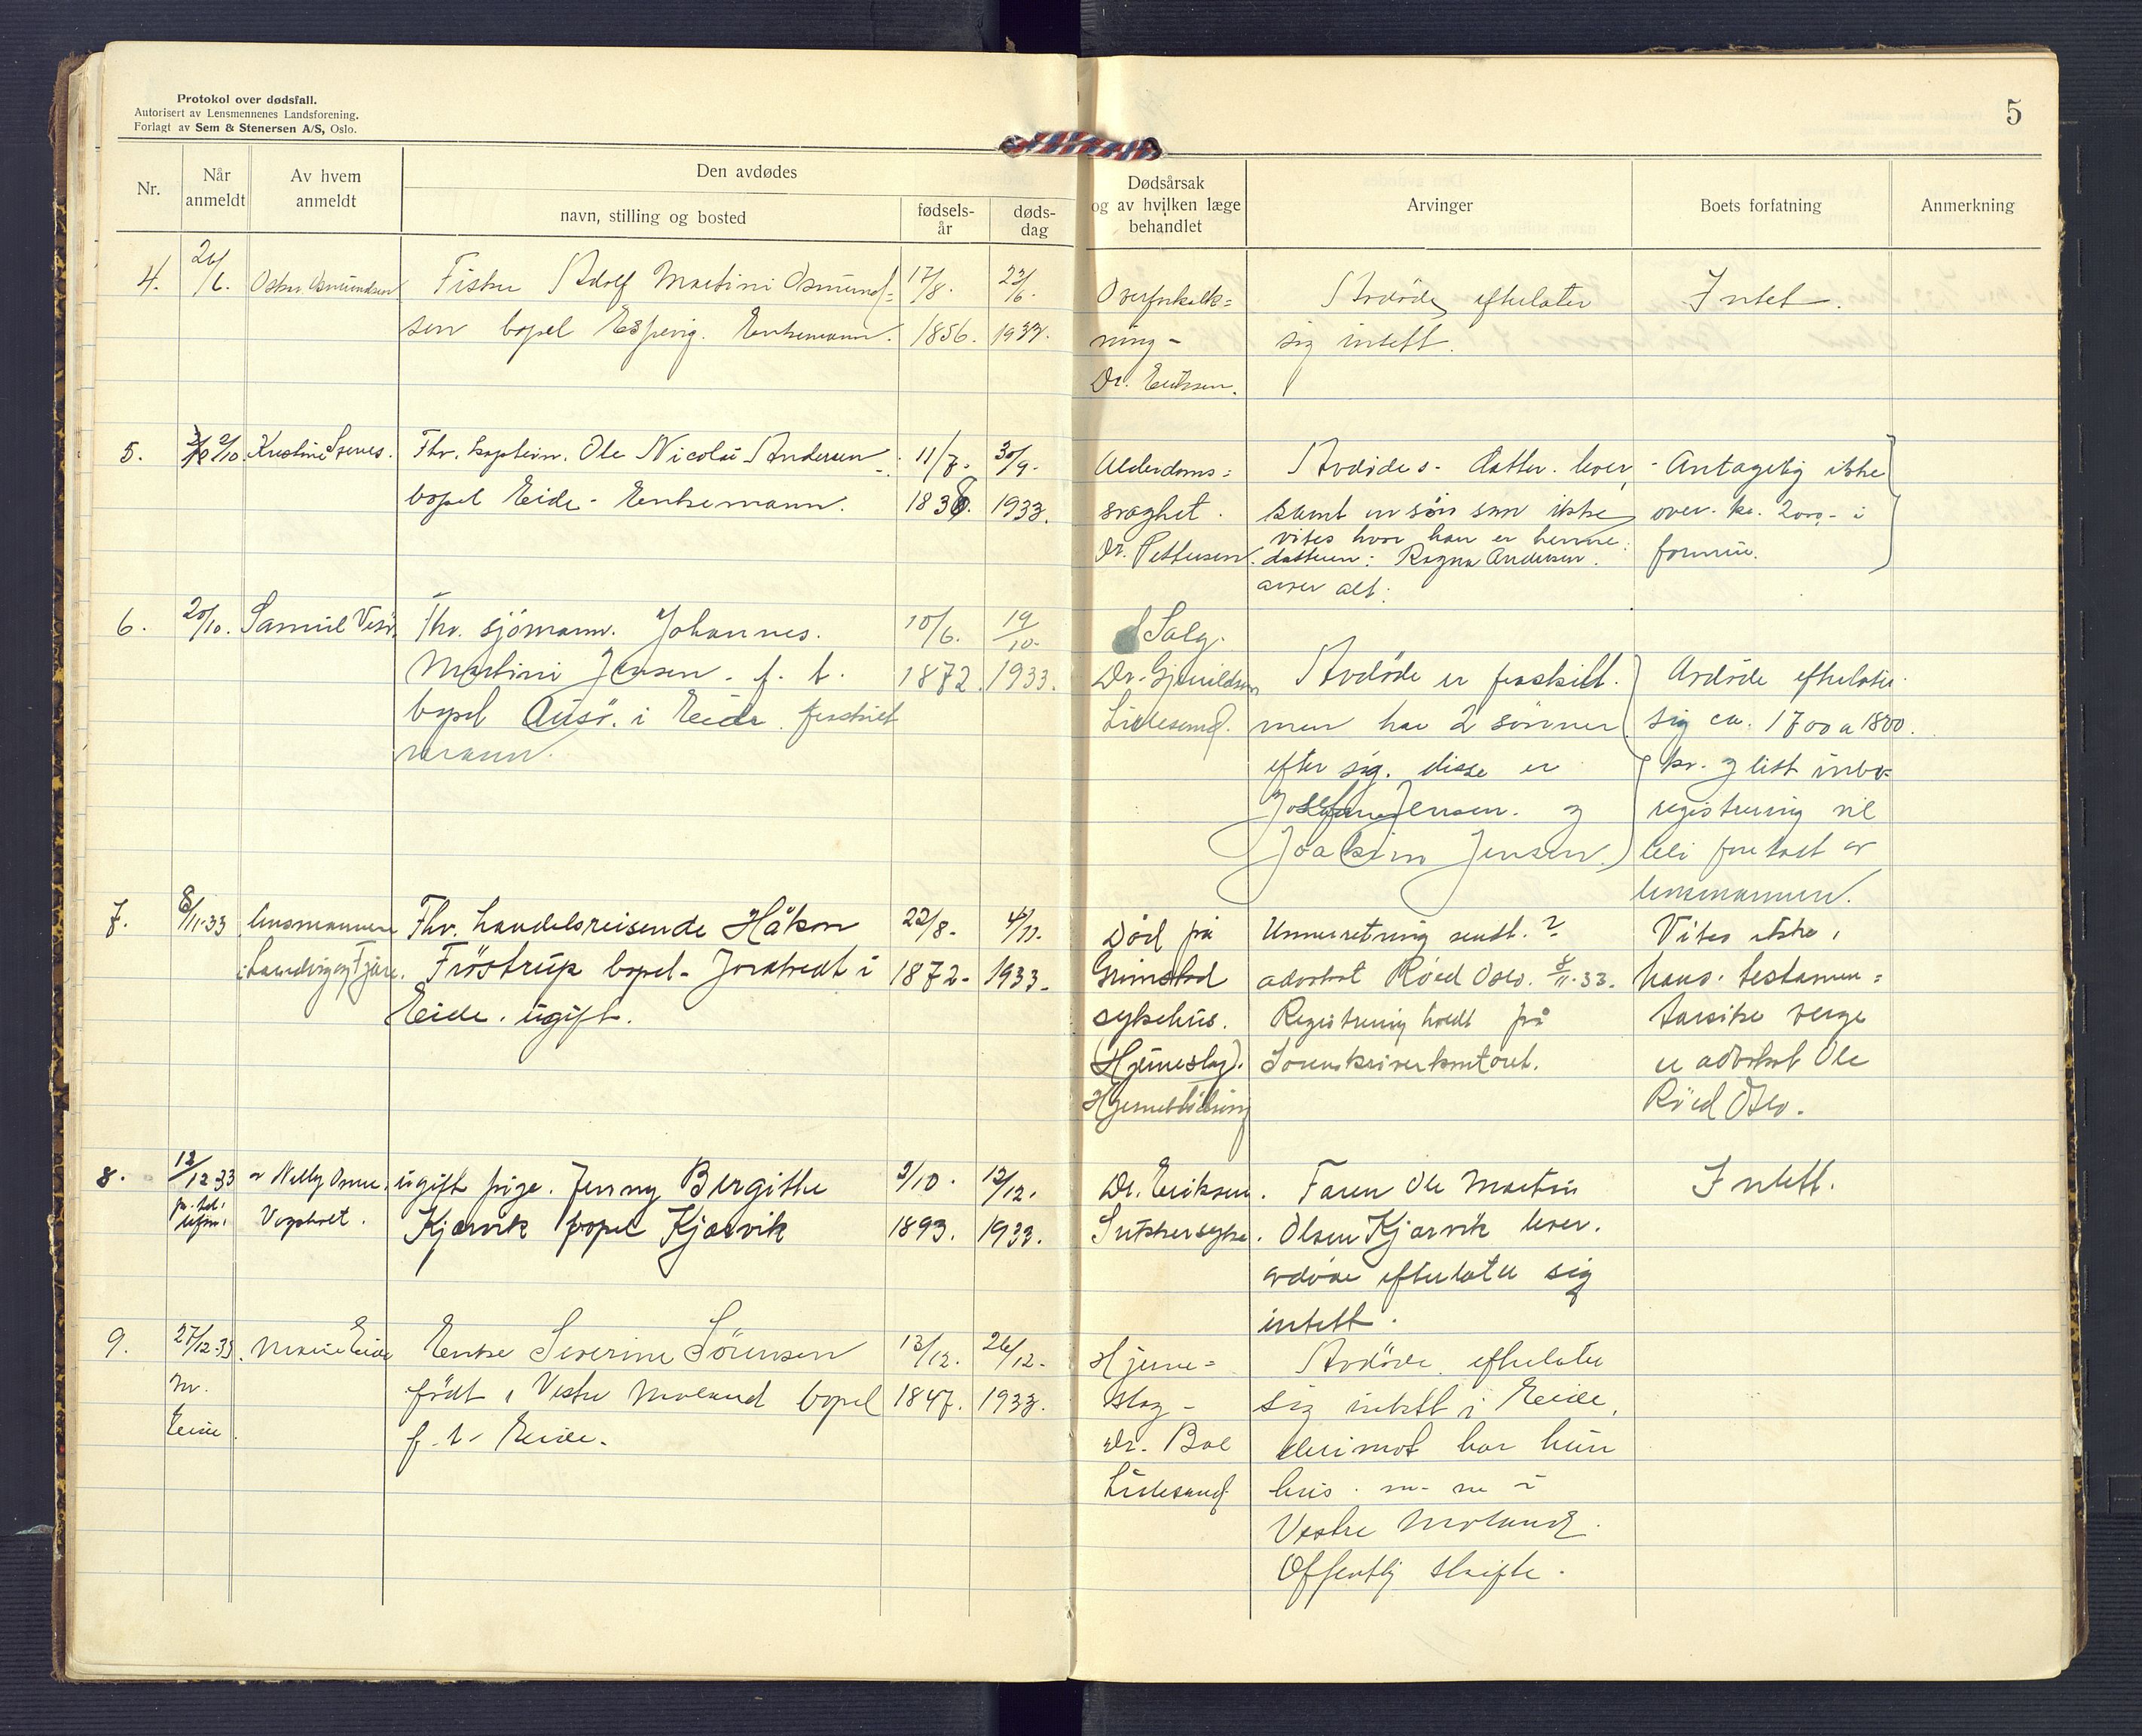 Protokol over dødsfall.
Autorisert av Lensmennenes Landsforening.
Forlagt av Sem & Stenersen A/S, Oslo.
5
Nr.
Når anmeldt
Av hvem anmeldt
Den avdødes
navn, stilling og bosted
fødsels-
år
døds-
dag
Dødsårsak
og av hvilken læge
behandlet
Arvinger
Boets forfatning
Anmerkning
4.
/6.
Osmundsen
Fisker Adolf Martini Osmund-
sen bopel Espevig. Enkemann.
17/8.
1856.
23/6.
1933.
Overforkalk=
ning -
Dr. Eriksen.
Avdöde efterlater
sig intett.
Intet.
5.
2/10.
Kristine
Fhv. kaptein. Ole Nicolai Andersen
bopel Eide - Enkemann.
11/7.
1838.
30/9.
1933.
Alderdoms=
svaghet.
Dr. Pettersen.
Avdödes datter lever,
samt en sön som ikke
vites hvor han er henne.
datteren: Ragna Andersen.
arver alt.
Antagelig ikke
over kr. 2000,- i
formue.
6.
20/10.
Samuel
Fhv. sjömann. Johannes.
Martini Jensen. f. t.
bopel Ausö. i Eide. fraskilt
mann.
10/6.
1872.
19/10.
1933.
Slag.
Dr.
Lillesand.
Avdöde er fraskilt.
men har 2 sönner
efter sig. disse er
Jensen. og
Joakim Jensen.
Avdöde efterlater
sig ca. 1700 a 1800.
kr. og litt inbo-
registrering vil
bli foretatt av
lensmannen.
7.
8/11-33
lensmannen
i Landvig og Fjære.
Fhv. handelsreisende Håkon
Fröstrup bopel - i
Eide. ugift.
22/8-
1872-
4/11-
1933-
Död på
Grimstad
sykehus.
(Hjerneslag).
Hjerneblödning
Underretning sendt.
advokat Röed Oslo. 8/11-33.
Registrering holdt på
Sorenskriverkontoret.
Vites ikke,
hans testamen=
tariske verge
er advokat Ole
Röed Oslo.
8.
12/12 33
pr. tel.
av Nelly
Vogsholt.
ugift pige. Jenny Bergithe
Kjørvik bopel Kjørvik
2/10.
1893.
12/12.
1933.
Dr. Eriksen.
Sukkersyke.
Faren Ole Martin
Olsen Kjørvik lever.
avdöde efterlater sig
intett.
Intett.
9.
27/12-33.
Marie Eide
Eide
Enke Severine Sörensen
födt i Vestre Moland bopel
f. t. Eide.
13/12.
1847.
26/12-
1933.
Hjerne=
slag -
Dr. Boe
Lillesand
Avdöde efterlater
sig intett i Eide,
derimot har hun
hus m. m. i
Vestre Moland.
Offentlig skifte.